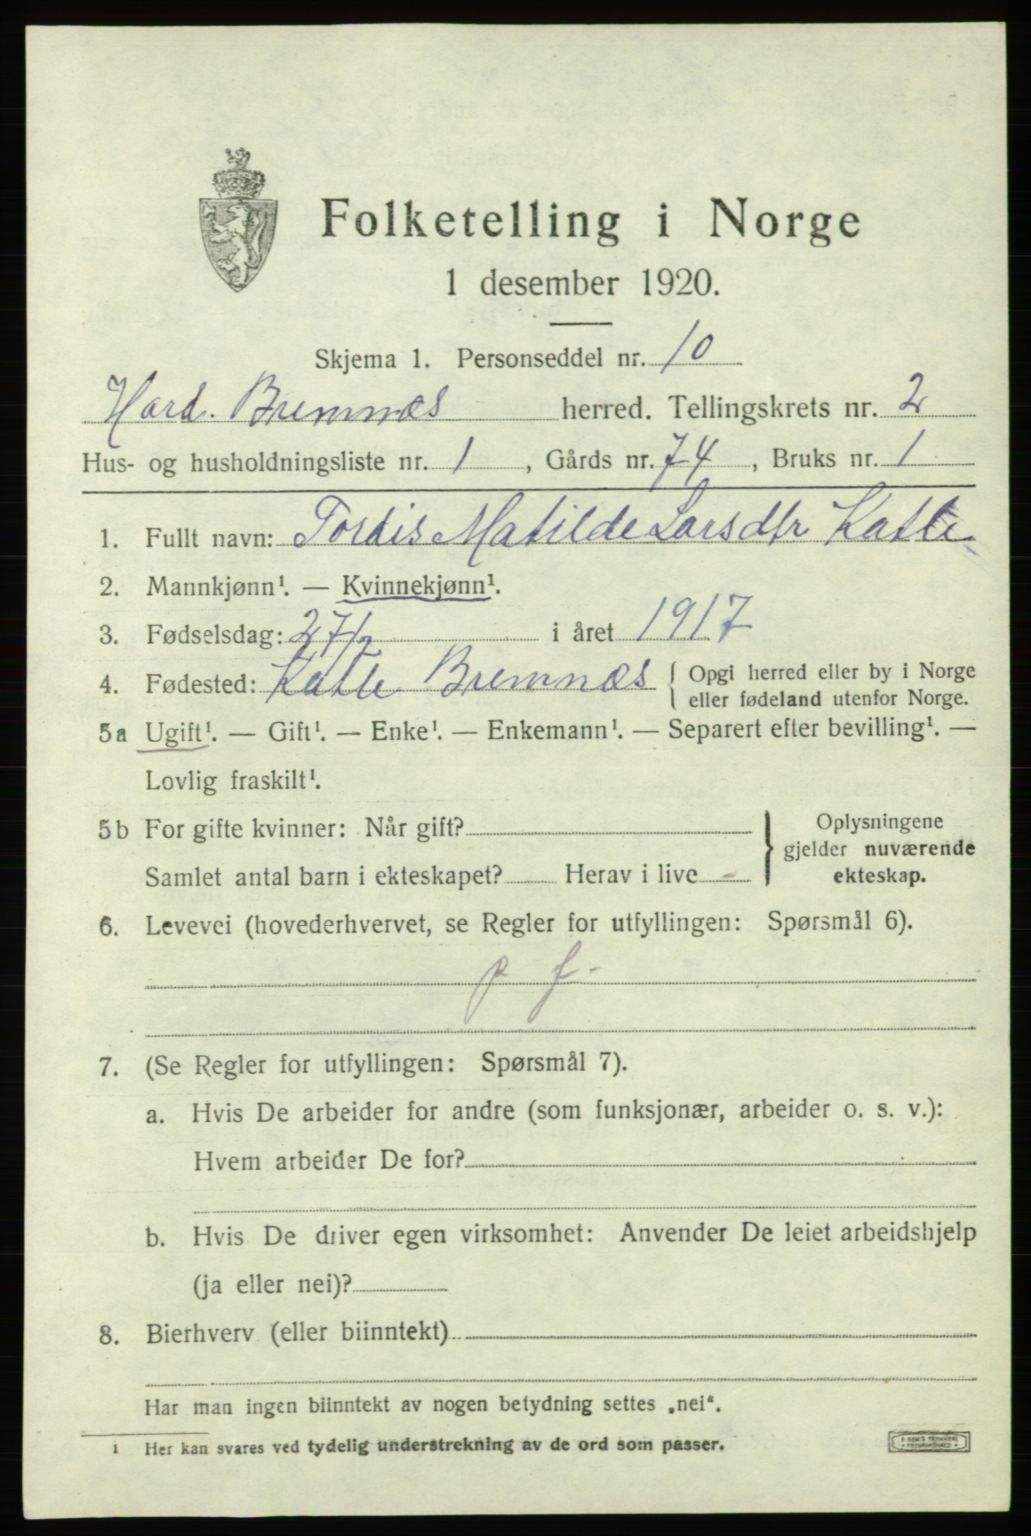 Folketelling i Norge
1 desember 1920.
Skjema 1. Personseddel nr. 10
Hard. Bremnæs herred. Tellingskrets nr. 2
Hus- og husholdningsliste nr. 1, Gårds nr. 74, Bruks nr. 1
1. Fullt navn: Tordis Matilde Larsdtr Katle
2. Mannkjønn¹. — Kvinnekjønn¹.
3. Fødselsdag: 27/2 i året 1917
4. Fødested: Katle Bremnæs { Opgi herred eller by i Norge
eller fødeland utenfor Norge.
5a Ugift¹. — Gift¹. — Enke¹. — Enkemann¹. — Separert efter bevilling¹. —
Lovlig fraskilt¹.
5b For gifte kvinner: Når gift? } Oplysningene
gjelder nuværende
Samlet antal barn i ekteskapet? Herav i live - ekteskap.
6. Levevei (hovederhvervet, se Regler for utfyllingen: Spørsmål 6).
p f-
7. (Se Regler for utfyllingen: Spørsmål 7).
a. Hvis De arbeider for andre (som funksjonær, arbeider o. s. v.):
Hvem arbeider De for?
b. Hvis De driver egen virksomhet: Anvender De leiet arbeidshjelp
(ja eller nei)?
8. Bierhverv (eller biinntekt)
Har man ingen biinntekt av nogen betydning settes „nei“.
¹ Her kan svares ved tydelig understrekning av de ord som passer.